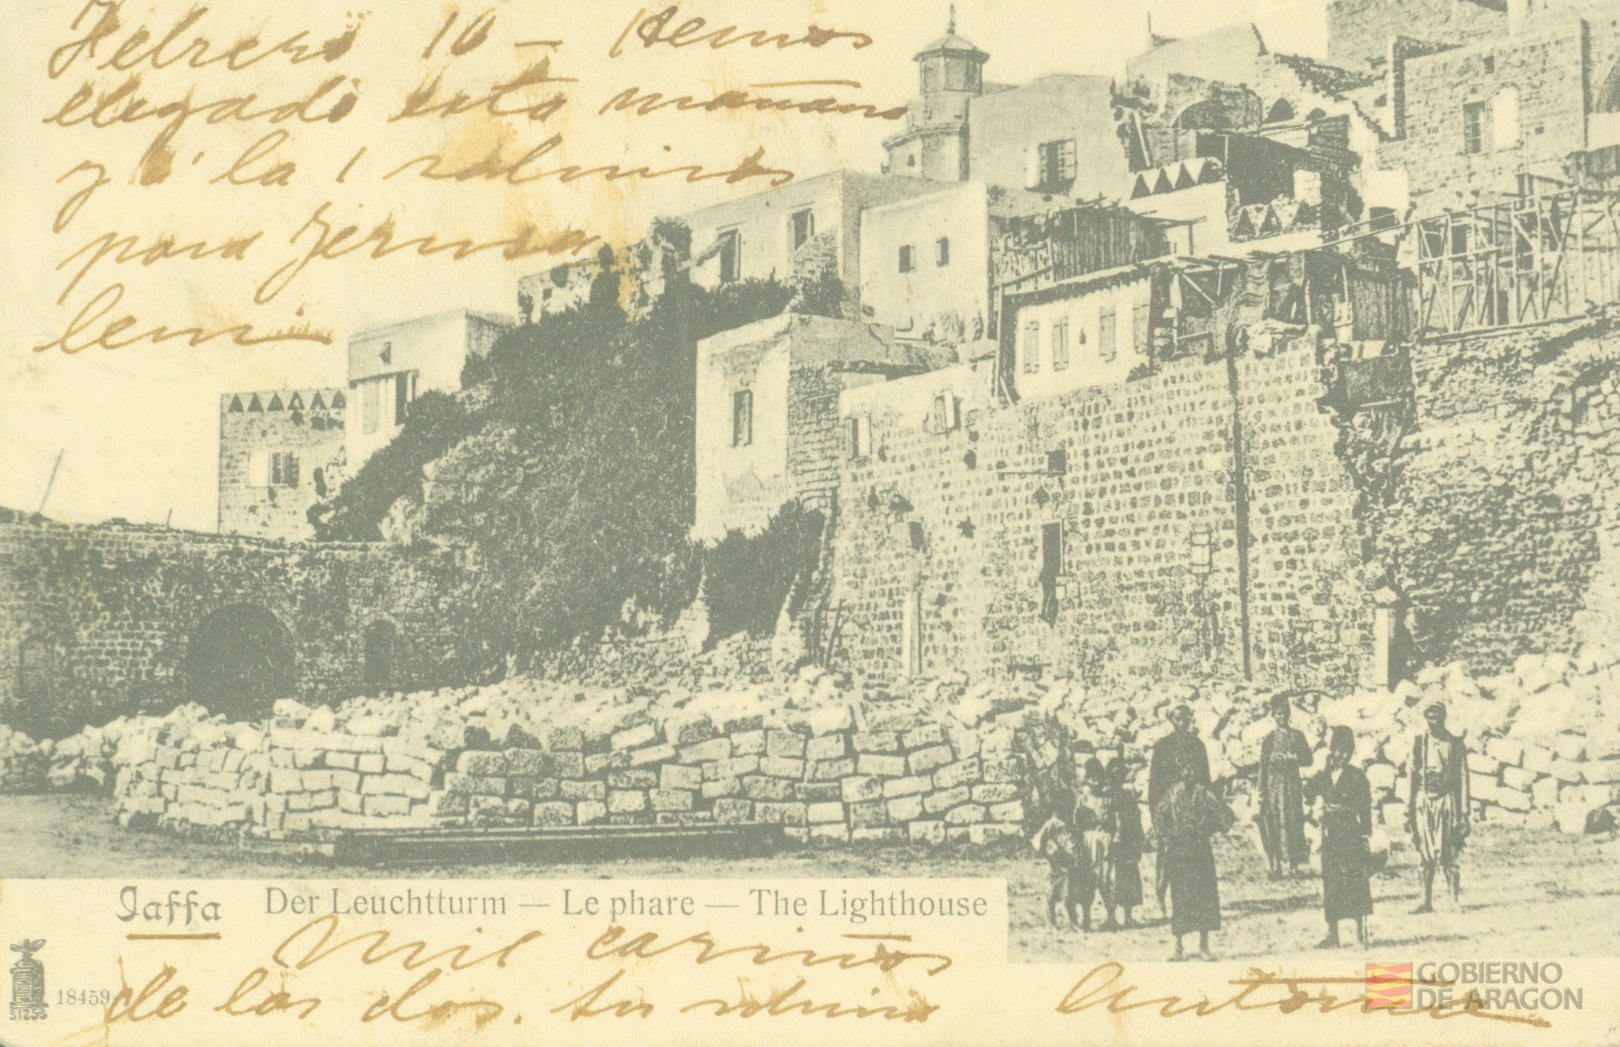 Febrero 10 - Hemos
llegado esta mañana
y á la 1 salimos
para Jerusa
lem
Jaffa Der Leuchtturm — Le phare — The Lighthouse
Mil cariños
18459 de las dos. tu sobrina Antonia
51253
GOBIERNO
DE ARAGON